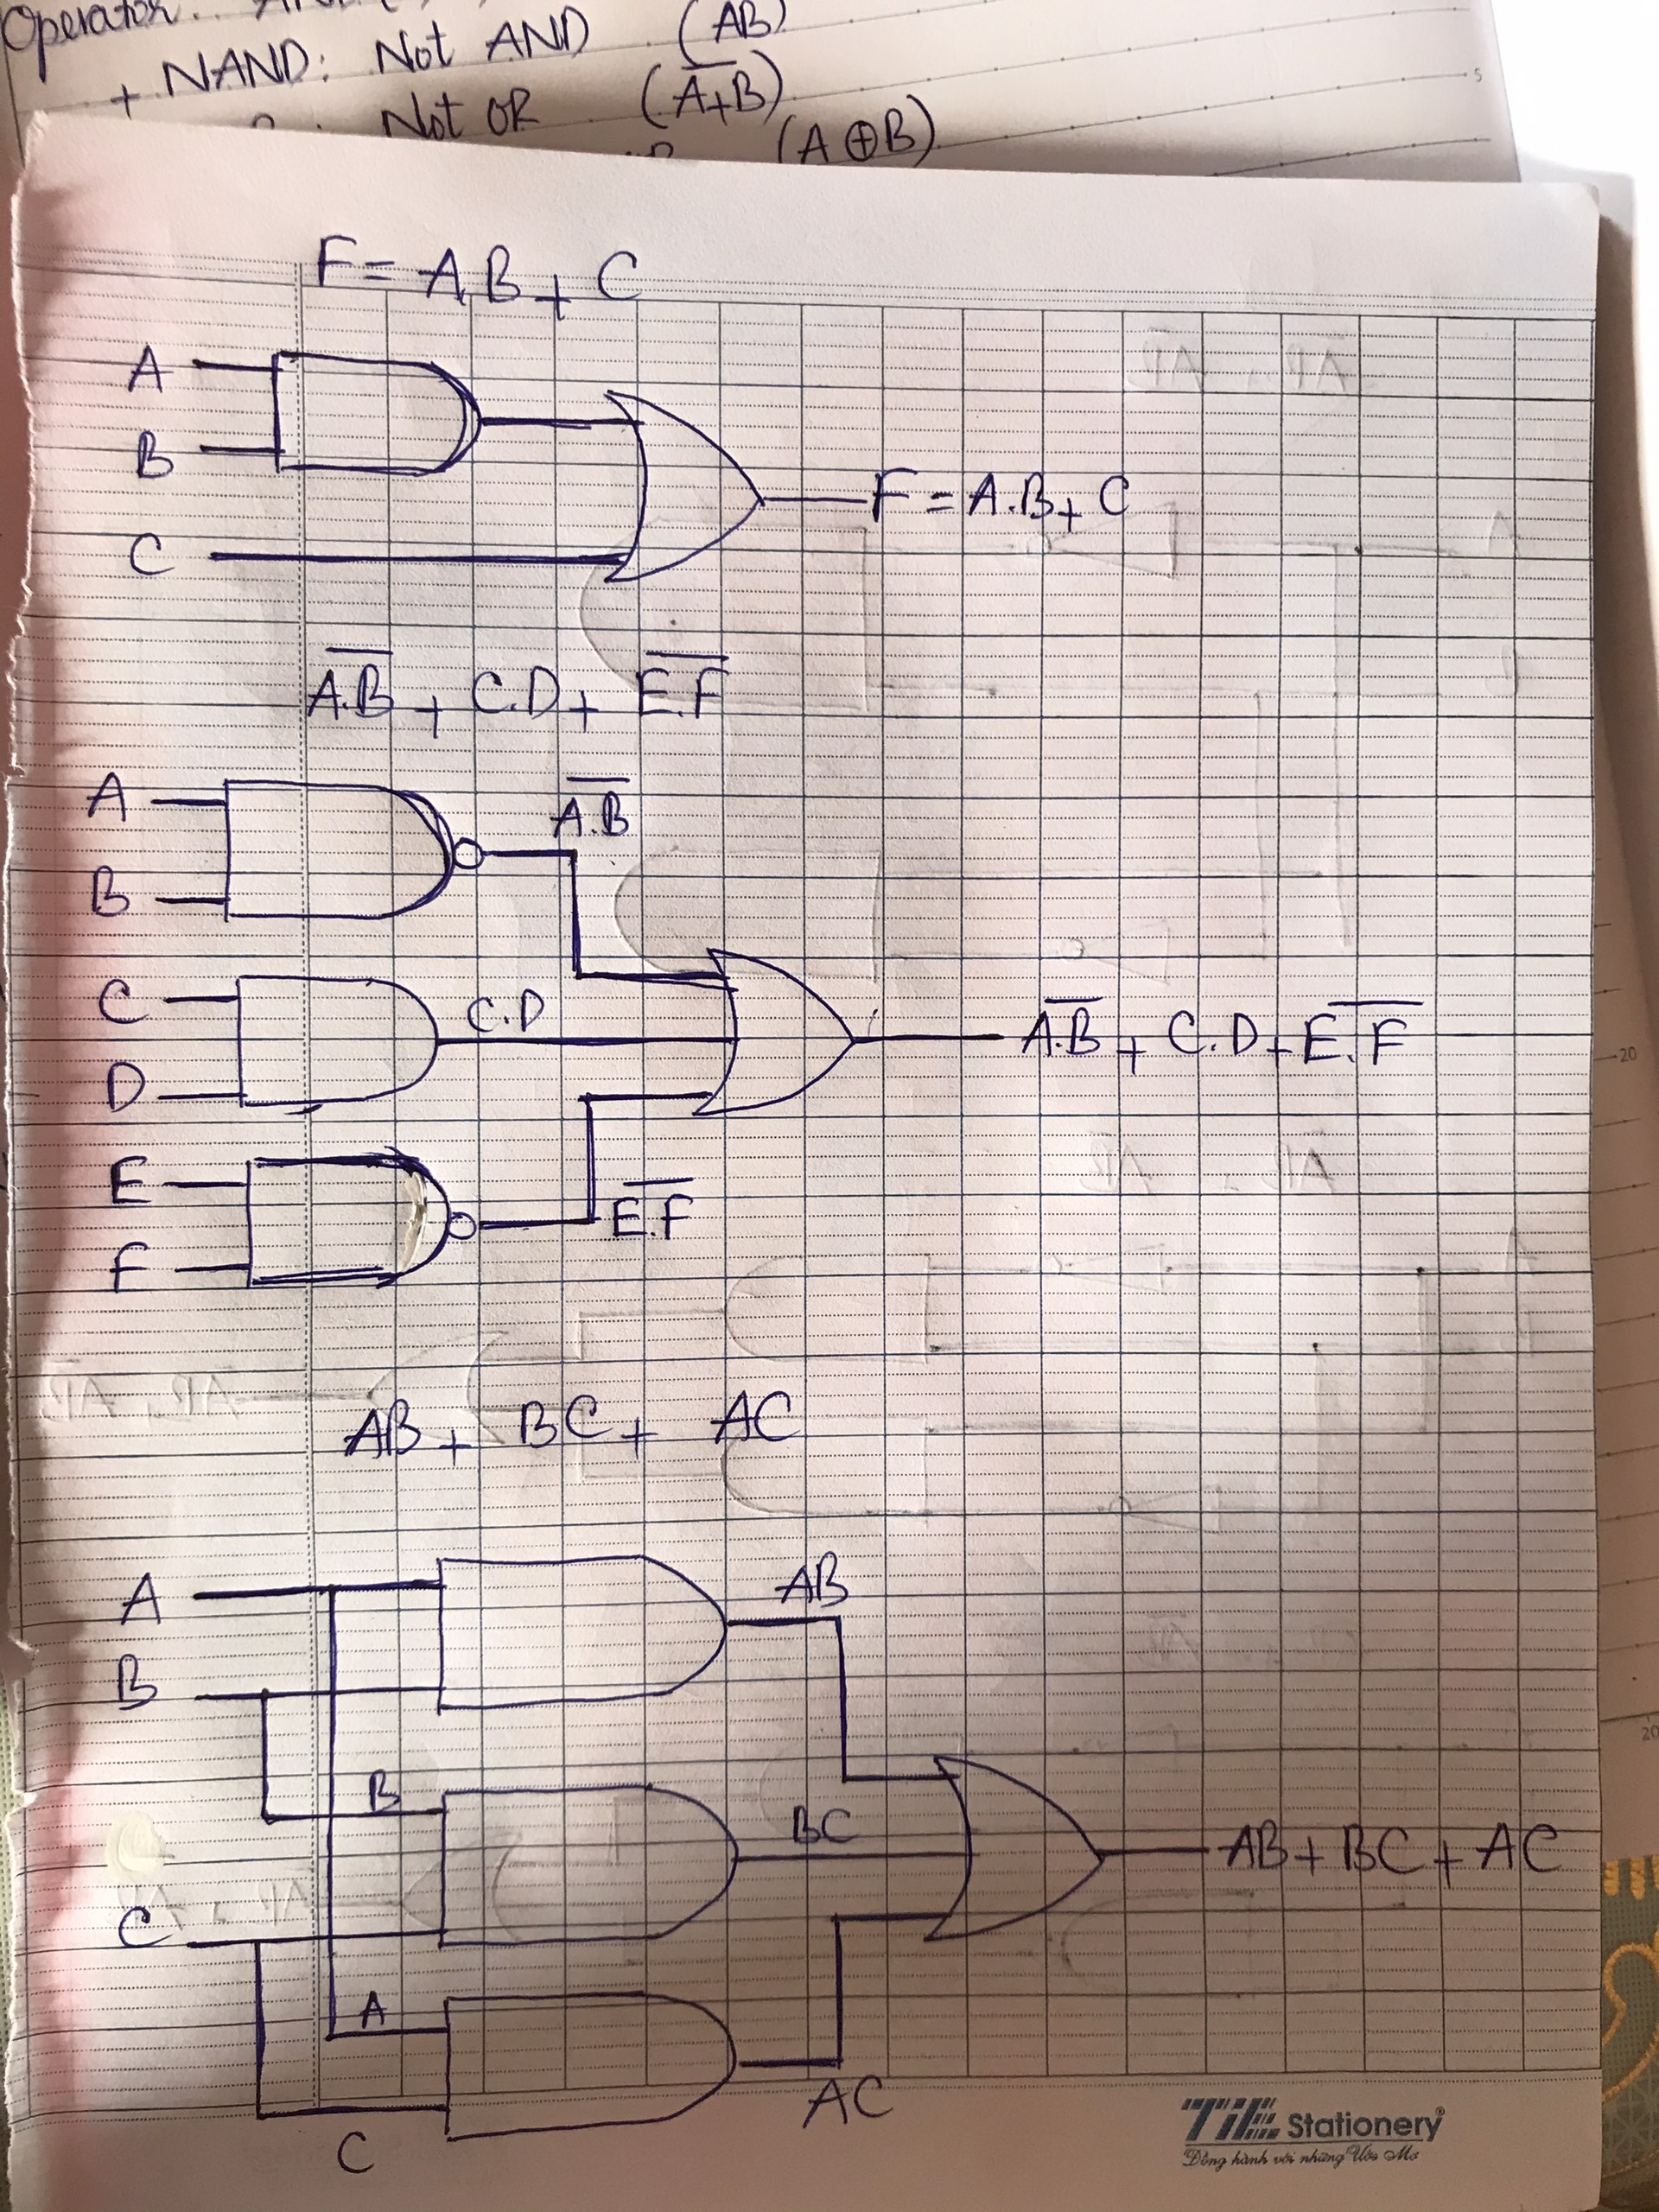 Operator.
+ NAND: Not AND (AB)
Not OR (A̅+̅B̅)
(A ⊕ B)
5
F = A.B + C
A
B
C
F = A.B + C
A̅.̅B̅ + C.D + E̅.̅F̅
A
B
A̅.̅B̅
C
D
C.D
A̅.̅B̅ + C.D + E̅.̅F̅
20
E
F
E̅.̅F̅
AB + BC + AC
A
AB
B
20
B
BC
AB + BC + AC
C
A
AC
C
TiE Stationery®
Đồng hành với những Ước Mơ